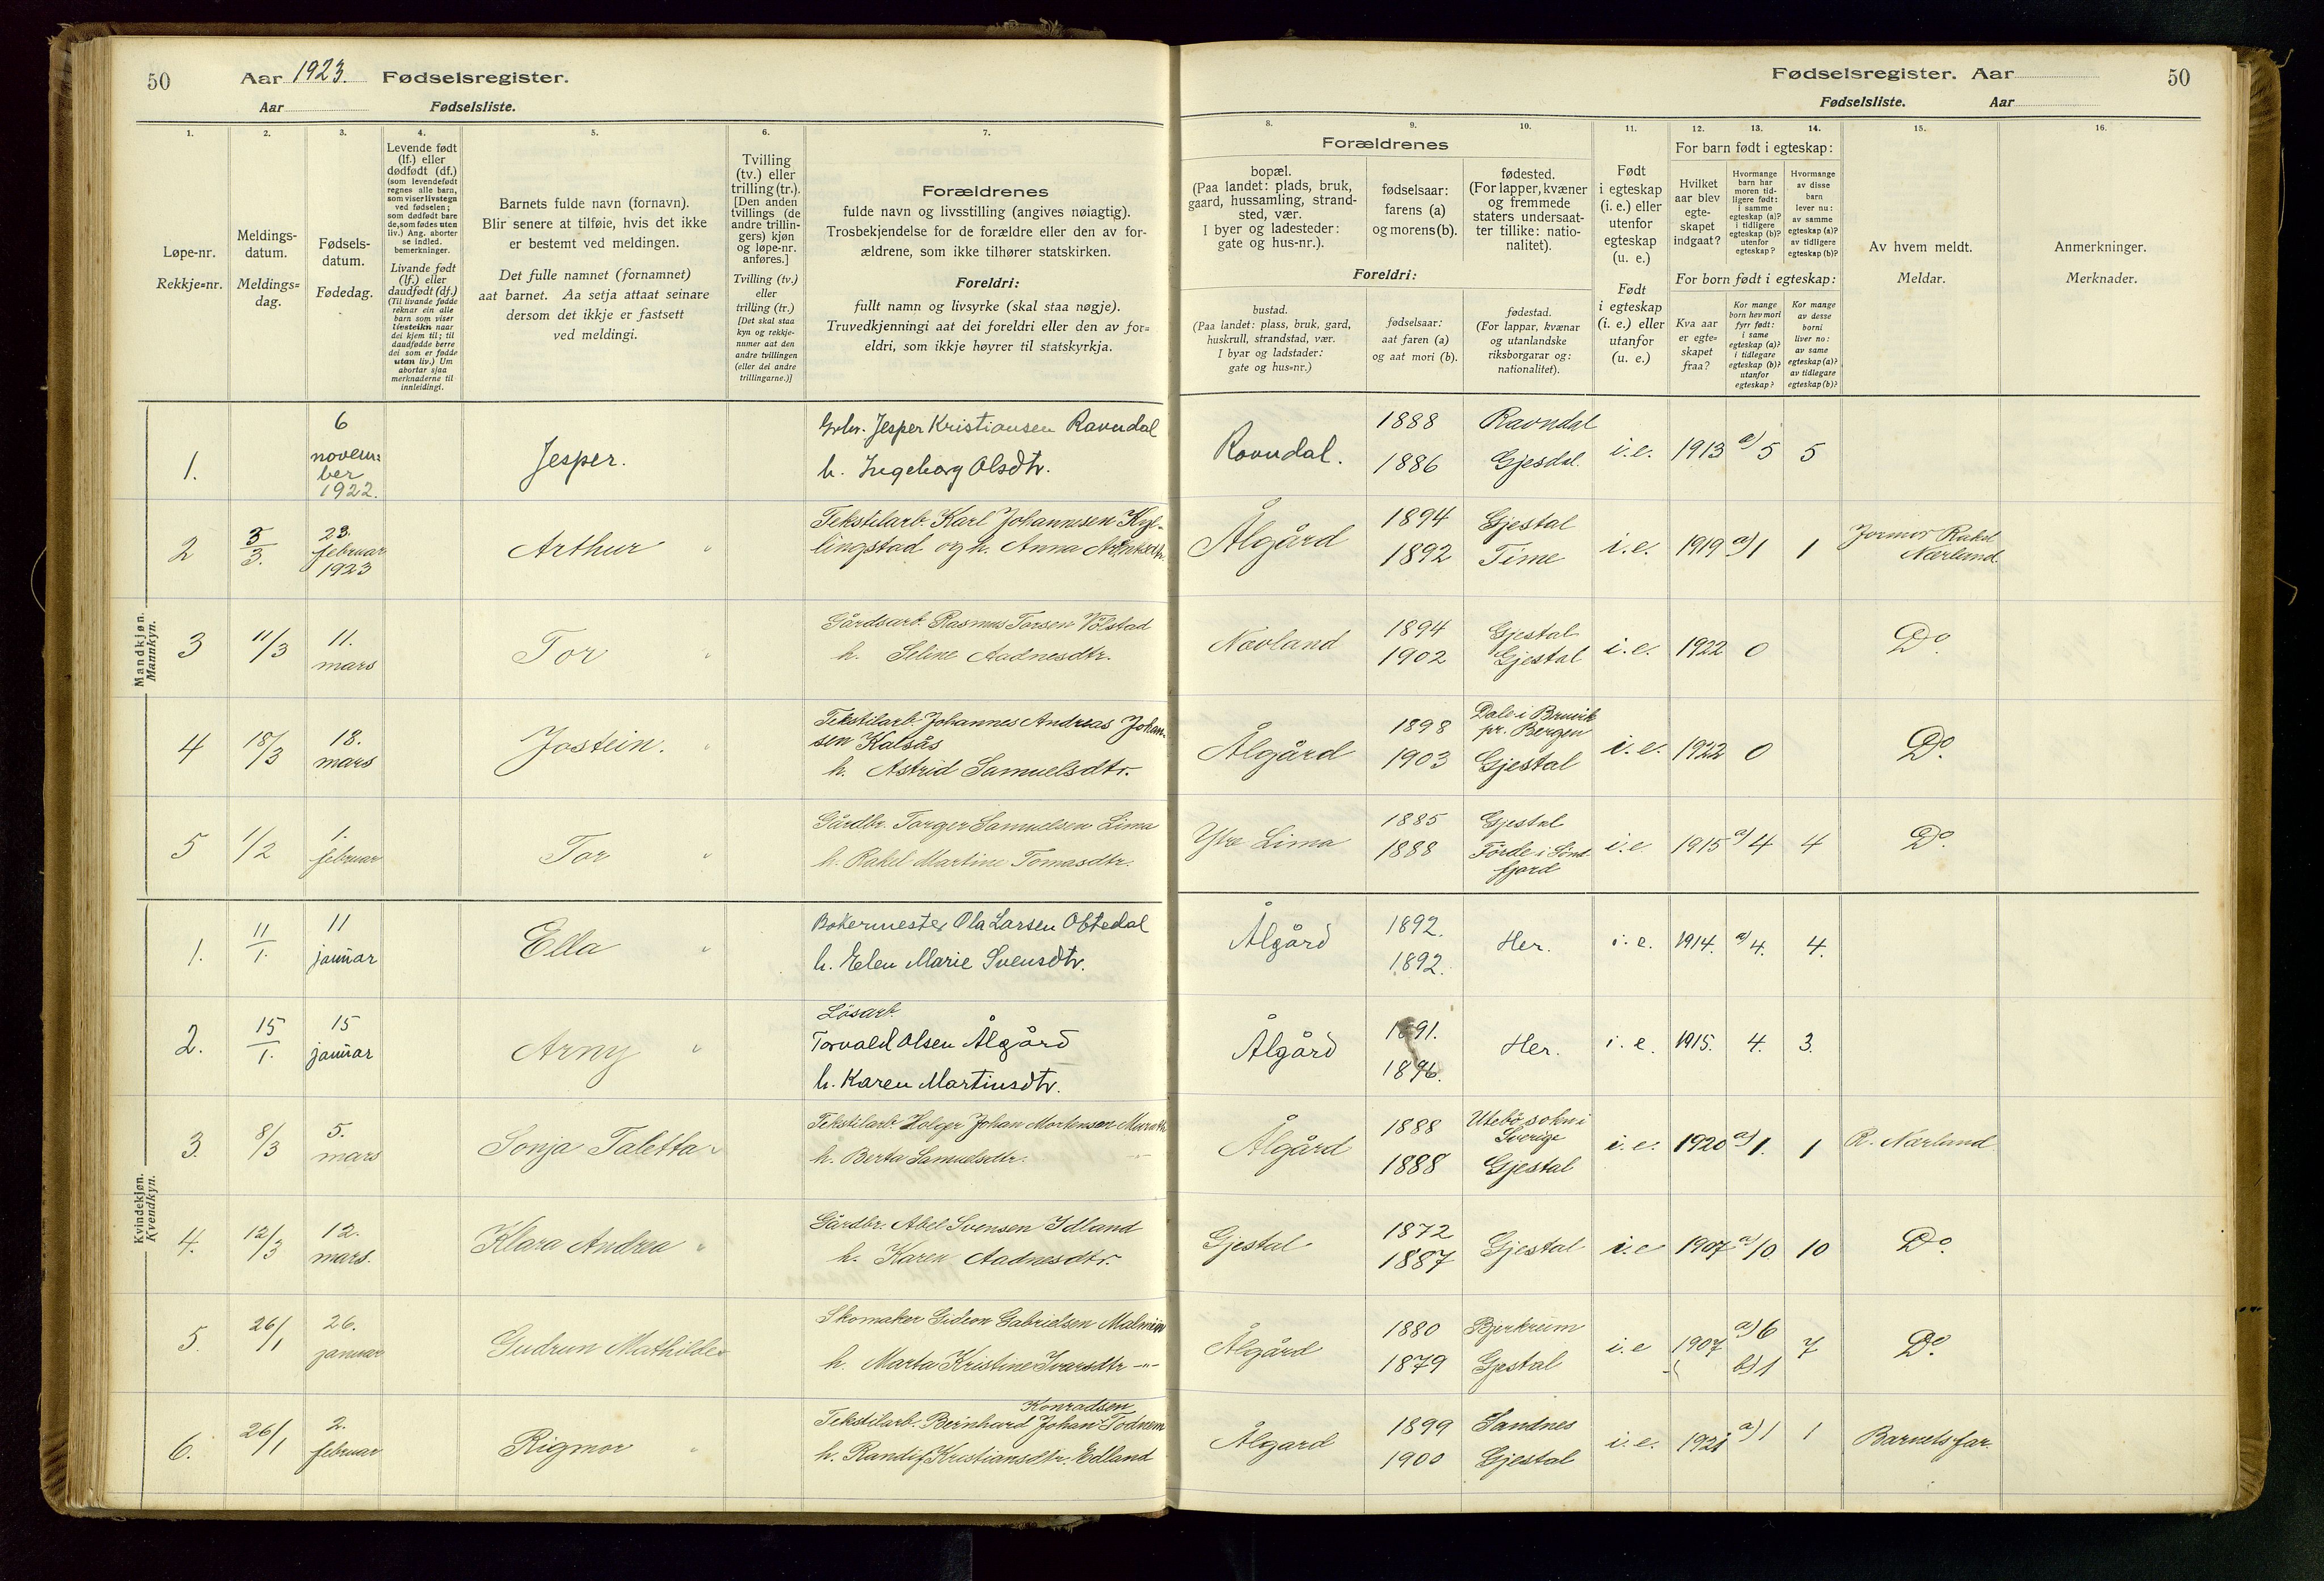 50 Aar 1923. Fødselsregister.
Aar Fødselsliste.
Fødselsregister. Aar 50
Fødselsliste. Aar
1. 2. 3. 4. 5. 6. 7. 8. 9. 10. 11. 12. 13. 14. 15. 16.
Løpe-nr.
Rekkje=nr.
Meldings-
datum.
Meldings=
dag.
Fødsels-
datum.
Fødedag.
Levende født
(lf.) eller
dødfødt (df.)
(som levendefødt
regnes alle barn,
som viser livstegn
ved fødselen;
som dødfødt bare
de, som fødes uten
liv.) Ang. aborter
se indled.
bemerkninger.
Livande født
(lf.) eller
daudfødt (df.)
(Til livande fødde
reknar ein alle
barn som viser
livsteikn naar
dei kjem til; til
daudfødde berre
dei som er fødde
utan liv.) Um
abortar sjaa
merknaderne til
innleidingi.
Barnets fulde navn (fornavn).
Blir senere at tilføie, hvis det ikke
er bestemt ved meldingen.
Det fulle namnet (fornamnet)
aat barnet. Aa setja attaat seinare
dersom det ikkje er fastsett
ved meldingi.
Tvilling
(tv.) eller
trilling (tr.).
[Den anden
tvillings (de
andre trillin-
gers) kjøn
og løpe-nr.
anføres.]
Tvilling (tv.)
eller
trilling (tr.)
[Det skal staa
kyn og rekkje-
numer aat den
andre tvillingen
(eller dei andre
trillingarne.)]
Forældrenes
fulde navn og livsstilling (angives nøiagtig).
Trosbekjendelse for de forældre eller den av for-
ældrene, som ikke tilhører statskirken.
Foreldri:
fullt namn og livsyrke (skal staa nøgje).
Truvedkjenningi aat dei foreldri eller den av for=
eldri, som ikkje høyrer til statskyrkja.
Forældrenes
bopæl.
(Paa landet: plads, bruk,
gaard, hussamling, strand-
sted, vær.
I byer og ladesteder:
gate og hus-nr.).
fødselsaar:
farens (a)
og morens (b).
fødested.
(For lapper, kvæner
og fremmede
staters undersaat-
ter tillike: natio-
nalitet).
Foreldri:
bustad.
(Paa landet: plass, bruk, gard,
huskrull, strandstad, vær.
I byar og ladstader:
gate og hus=nr.)
fødselsaar:
aat faren (a)
og aat mori (b).
fødestad.
(For lappar, kvænar
og utanlandske
riksborgarar og:
nationalitet).
Født
i egteskap
(i. e.) eller
utenfor
egteskap
(u. e.)
Født
i egteskap
(i. e.) eller
utanfor
(u. e.)
For barn født i egteskap:
Hvilket
aar blev
egte-
skapet
indgaat?
Hvormange
barn har
moren tid-
ligere født:
i samme
egteskap (a)?
i tidligere
egteskap (b)?
utenfor
egteskap?
Hvormange
av disse
barn
lever nu:
av samme
egteskap (a)?
av tidligere
egteskap (b)?
For born født i egteskap:
Kva aar
er egte-
skapet
fraa?
Kor mange
born hev mori
fyrr født:
i same
egteskap (a)?
i tidlegare
egteskap (b)?
utanfor
egteskap?
Kor mange
av desse
borni
liver no:
av same
egteskap (a)?
av tidlegare
egteskap (b)?
Av hvem meldt.
Meldar.
Anmerkninger.
Merknader.
Mandkjøn.
Mannkyn.
1. 6 novem= ber 1922. Jesper. Grbr. Jesper Kristiansen Ravndal
h. Ingeborg Olsdtr.
Ravndal. 1888 1886 Ravndal Gjesdal. i.e. 1913 a) 5 5
2 3/3. 23. februar 1923 Arthur " Tekstilarb. Karl Johannesen Kyl-
lingstad og h. Anna
Ålgård 1894 1892 Gjestal Time i.e. 1919 a) 1 1 Jormor Rakel Nærland
3 11/3 11. mars Tor " Gårdsarb. Rasmus Torsen Vølstad
h. Seline Aadnesdtr.
Nævland 1894 1902 Gjestal Gjestal i.e. 1922 0 Do.
4 18/3 18. mars Jostein. " Tekstilarb. Johannes Andreas Johan-
sen Kalsås
h. Astrid Samuelsdtr.
Ålgård 1898 1903 Dale i Bruvik pr. Bergen Gjestal i.e. 1922 0 Do.
5 1/2 1. februar Tor " Gårdbr. Torger Samuelsen Lima
h. Rakel Martine Tomasdtr.
Ytre Lima 1885 1888 Gjestal Förde i Sönd- fjord i.e 1915 a) 4 4 Do.
Kvindekjøn.
Kvendkyn.
1. 11/1. 11 januar Ella " Bakermester Ola Larsen Oftedal
h. Elen Marie Svensdtr.
Ålgård 1892. 1892. Her. i.e. 1914. a) 4. 4.
2. 15/1. 15 januar Arny " Lösarb.
Torvald Olsen Ålgård
h. Karen Martinsdtr.
Ålgård 1891. 1896. Her. i.e. 1915. 4. 3.
3. 8/3 5. mars Sonja Taletta " Tekstilarb. Holger Johan Mortensen
h. Berta Samuelsdtr.
Ålgård 1888 1888 Utebö sokn i Sverige Gjestal i.e. 1920 a) 1. 1 R. Nærland
4. 12/3 12. mars. Klara Andrea " Gårdbr. Abel Svensen Idland
h. Karen Aadnesdtr.
Gjestal 1872 1887 Gjestal i.e 1907 a) 10 10 Do.
5. 26/1 26. januar Gudrun Mathilde " Skomaker Gideon Gabrielsen Malmin
h. Marta Kristine Ivarsdtr -"-
Ålgård 1880 1879 Bjerkreim Gjestal i.e 1907 a) 6 b) 1 7 Do.
6. 26/1 2. februar Rigmor " Konradsen
Tekstilarb. Bernhard Johan Todnem
h. Randi Kristiansdtr. Edland
Ålgard 1899 1900 Sandnes Gjestal i.e. 1921 a) 1 1 Barnets far.